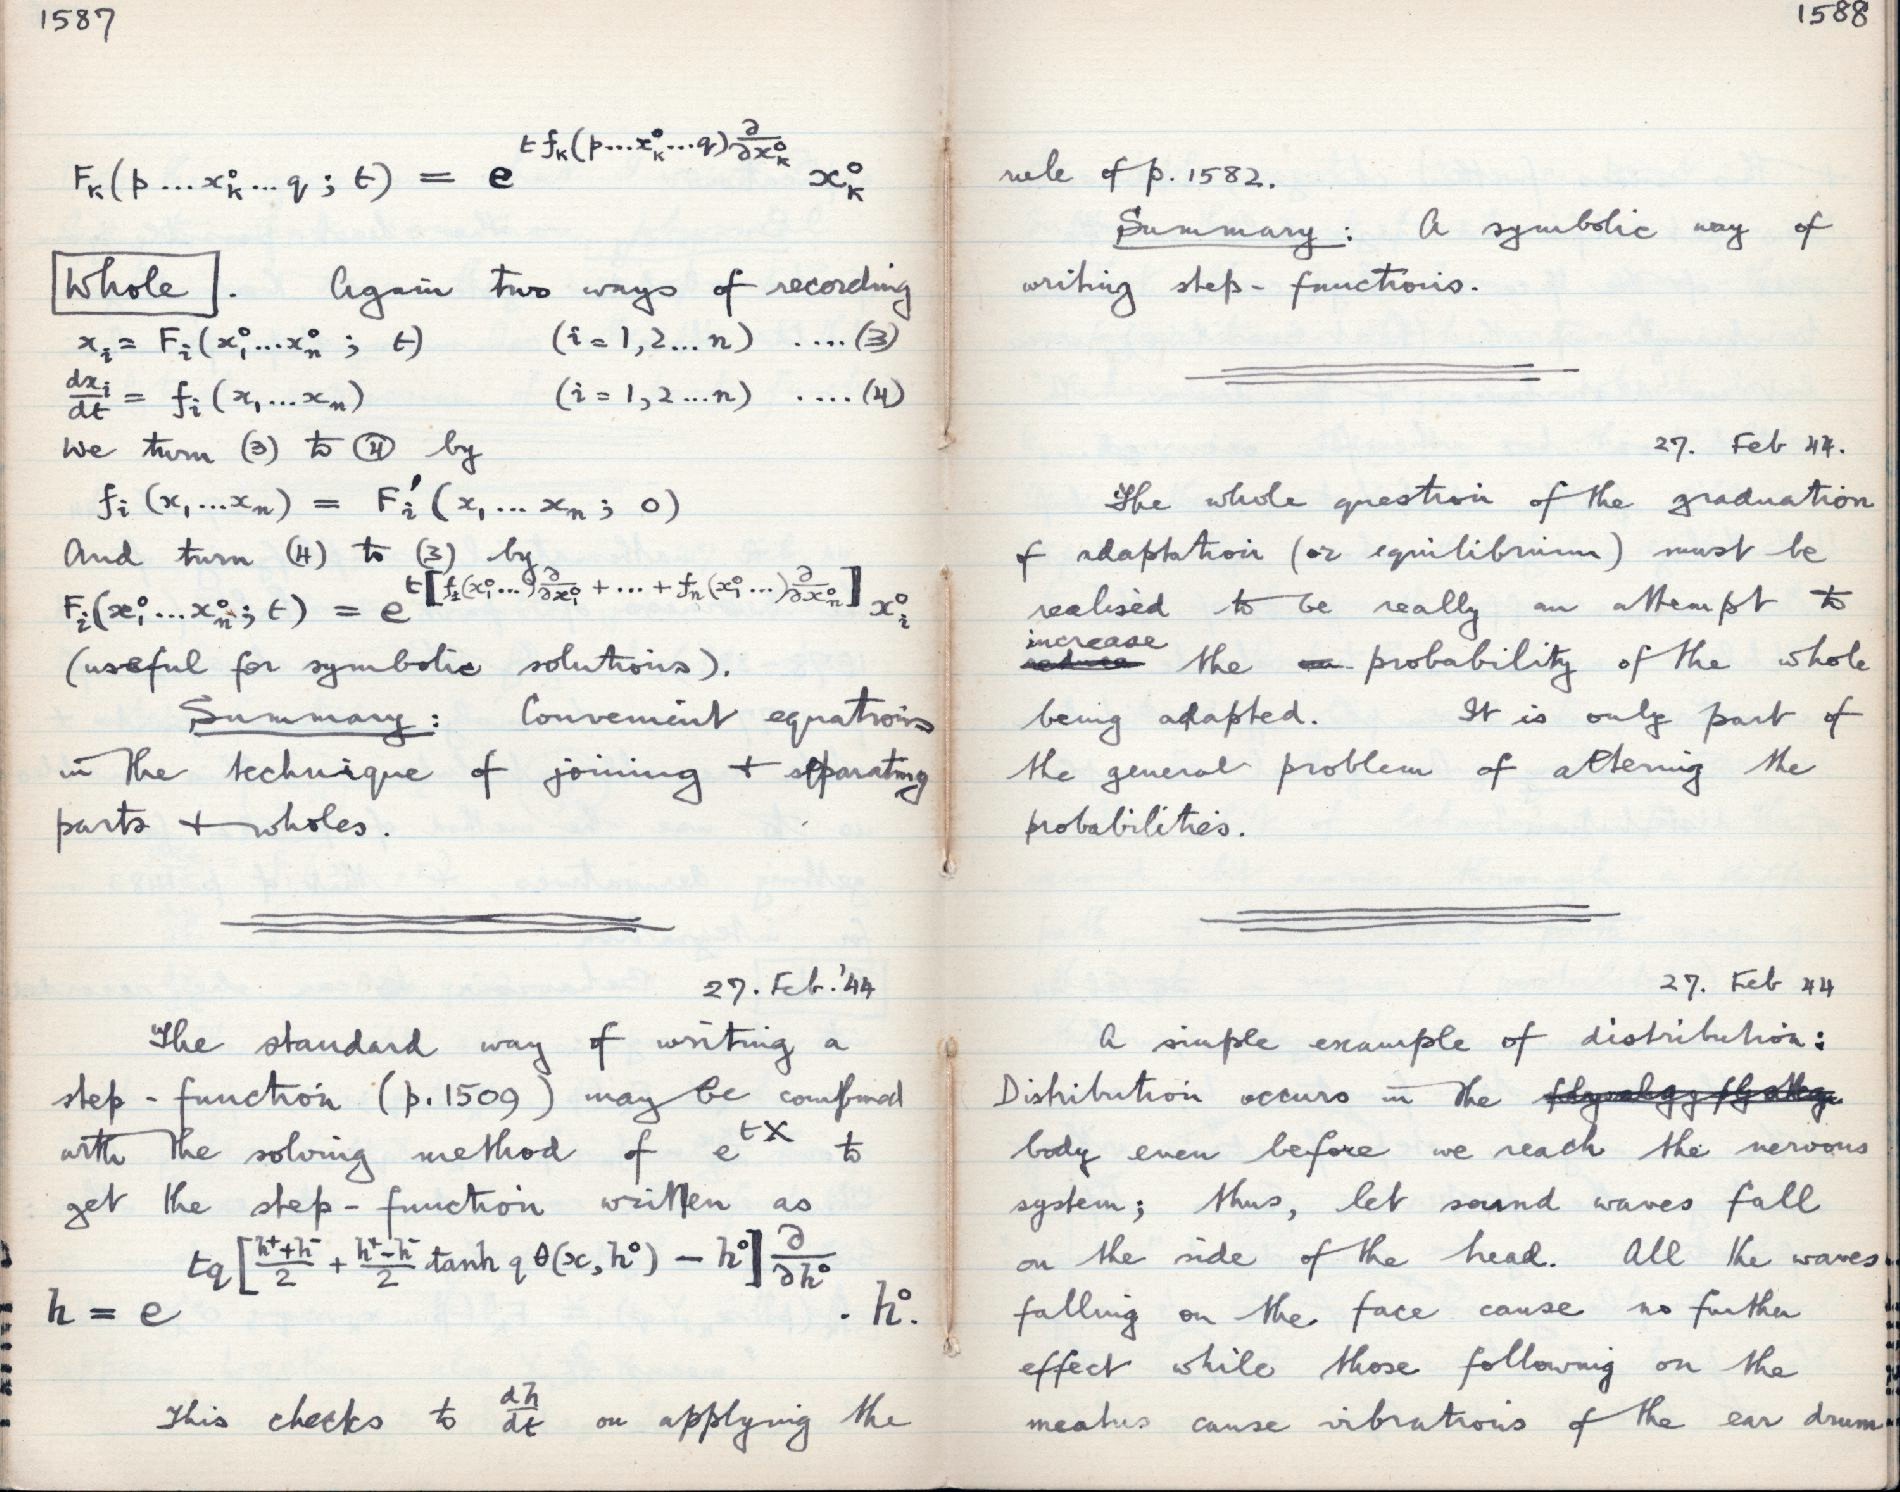 1587
F_k(p...x_k°...q; t) = e^{t f_k(p...x_k°...q) ∂/∂x_k°} x_k°
Whole. Again two ways of recording
x_i = F_i(x_1°...x_n°; t) (i = 1,2...n) ....(3)
dx_i/dt = f_i(x_1...x_n) (i = 1,2...n) ....(4)
We turn (3) to (4) by
f_i(x_1...x_n) = F_i'(x_1...x_n; 0)
And turn (4) to (3) by
F_i(x_1°...x_n°; t) = e^{t[f_1(x_1°...)∂/∂x_1° + ... + f_n(x_1°...)∂/∂x_n°]} x_i°
(useful for symbolic solutions).
Summary: Convenient equations
in the technique of joining + separating
parts + wholes.
27. Feb. '44
The standard way of writing a
step-function (p. 1509) may be combined
with the solving method of e^{tX} to
get the step-function written as
h = e^{tq[(h⁺+h⁻)/2 + (h⁺-h⁻)/2 tanh q θ(x, h°) - h°] ∂/∂h°} . h°.
This checks to dh/dt on applying the
1588
rule of p. 1582.
Summary: A symbolic way of
writing step-functions.
27. Feb 44.
The whole question of the graduation
of adaptation (or equilibrium) must be
realised to be really an attempt to
increase
the probability of the whole
being adapted. It is only part of
the general problem of altering the
probabilities.
27. Feb 44
A simple example of distribution:
Distribution occurs in the
body even before we reach the nervous
system; thus, let sound waves fall
on the side of the head. All the waves
falling on the face cause no further
effect while those following on the
meatus cause vibrations of the ear drum